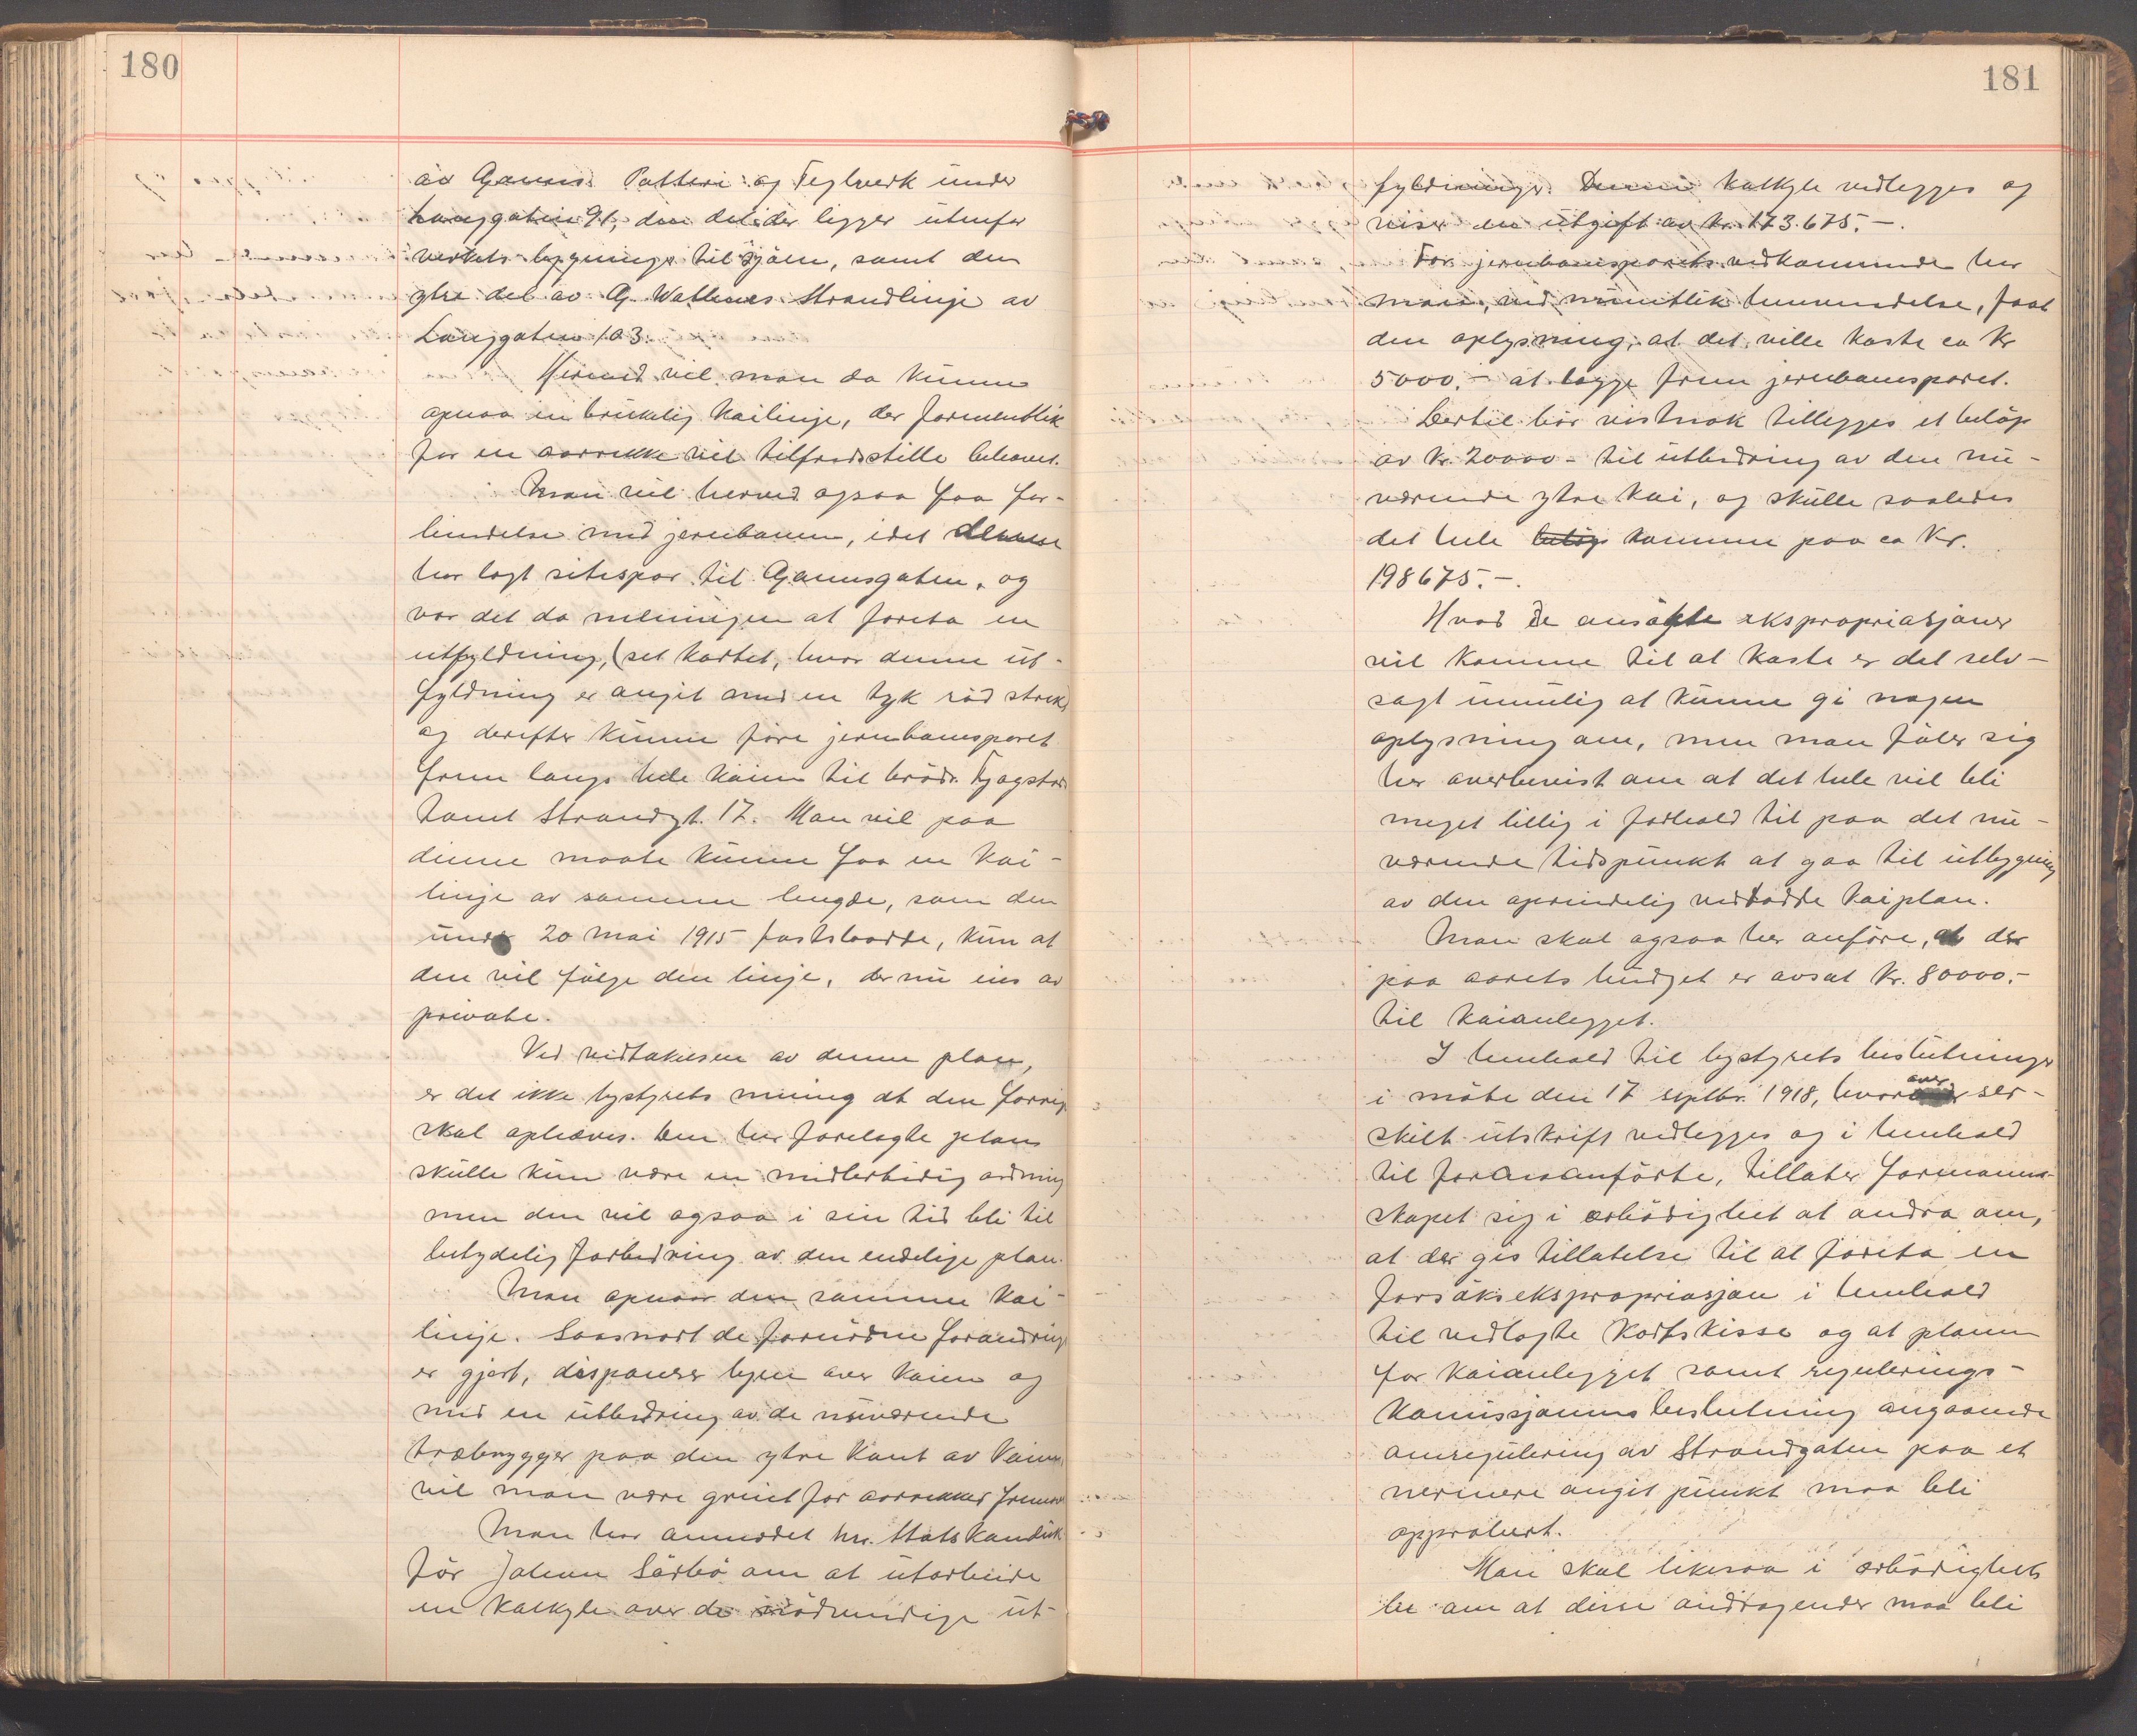 180
av Ganns Potteri og Teglverk under
Langgaten 91, den del der ligger utenfor
verkets bygninger til sjöen, samt den
ytre del av G. Wattnes Strandlinje av
Langgaten 103.
Hermed vil man da kunne
opnaa en brukelig kailinje, der formentlik
for en aarrekke vil tilfredsstille behovet.
Man vil herved ogsaa faa for-
bindelse med jernbanen, idet denne
har lagt sitespor til Gannsgaten, og
var det da meningen at foreta en
utfyldning, (set kartet, hvor denne ut-
fyldning er angit med en tyk röd strek)
og derefter kunne före jernbanesporet
frem langs hele kaien til brödr. Tjagstad
tomt Strandgt. 17. Man vil paa
denne maate kunne faa en kai-
linje av samme lengde, som den
under 20 mai 1915 fastslaadde, kun at
den vil fölge den linje, der nu eies av
private.
Ved vidtakelsen av denne plan,
er det ikke bystyrets mening at den forrige
skal ophæves. Den her forelagte plan
skulle kun være en midlertidig ordning
men den vil ogsaa i sin tid bli til
betydelig forbedring av den endelige plan.
Man opnaar den samme kai-
linje. Saasnart de fornödne forandringer
er gjort, disponerer byen over kaien og
med en utbedring av de nuværende
træbrygger paa den ytre kant av kaien,
vil man være greiet for aarrekker fremover
Man har anmodet hr. Statskonduk-
tör Johan Sörbö om at utarbeide
en kalkyle over de nödvendige ut-
181
fyldninger. Denne kalkyle vedlegges og
viser en utgift av kr. 173.675.-.
For jernbanesporets vedkommende har
man, ved muntlik henvendelse, faat
den oplysning, at det ville koste ca kr
5000.- at legge frem jernbanesporet.
Dertil bör vistnok tillegges et belöp
av kr. 20000- til utbedring av den nu-
værende ytre kai, og skulle saaledes
det hele belöp komme paa ca kr.
198675.-.
Hvad de ansökte ekspropriasjoner
vil komme til at koste er det selv-
sagt umulig at kunne gi nogen
oplysning om, men man föler sig
her overbevist om at det hele vil bli
meget billig i forhold til paa det nu-
værende tidspunkt at gaa til utbygning
av den oprindelig vedtadde kaiplan.
Man skal ogsaa her anföre, at der
paa aarets budget er avsat kr. 80000.-
til kaianlegget.
I henhold til bystyrets beslutninger
i möte den 17 septbr. 1918, hvorover ser-
skilt utskrift vedlegges og i henhold
til foranamförte, tillater formann-
skapet sig i ærbödighet at andra om,
at der gis tillatelse til at foreta en
forsöksekspropriasjon i henhold
til vedlagte kartskisse og at planen
for kaianlegget samt regulerings-
komissjonens beslutning angaaende
omregulering av Strandgaten paa et
nermere angit punkt maa bli
approbert.
Man skal likesaa i ærbödighet
be om at disse andragender maa bli